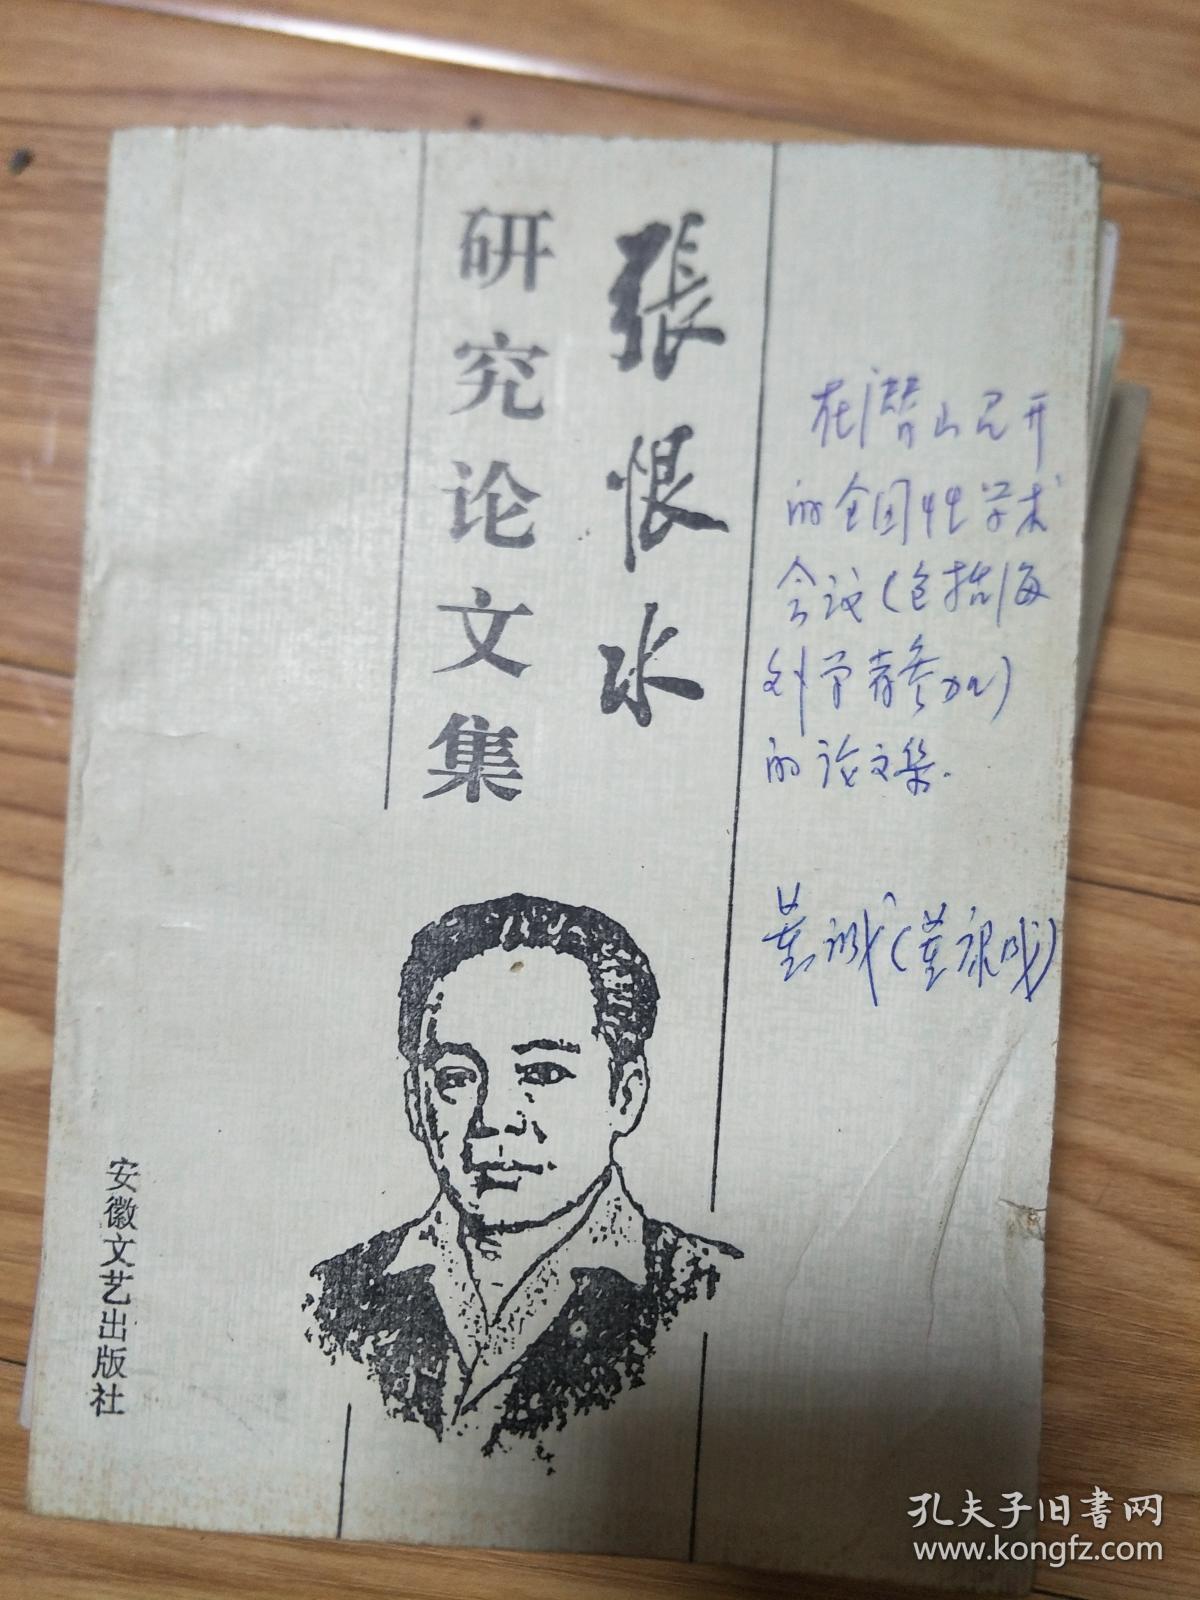 張恨水
研究论文集
在潜山召开
的全国性学术
会议(包括海
外学者参加)
的论文集.
安徽文艺出版社
孔夫子旧书网
www.kongfz.com